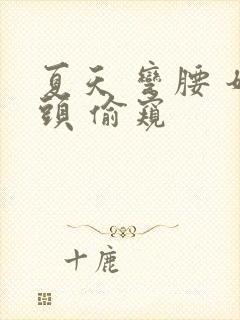 夏天 彎腰 奶
頭 偷窺
十鹿